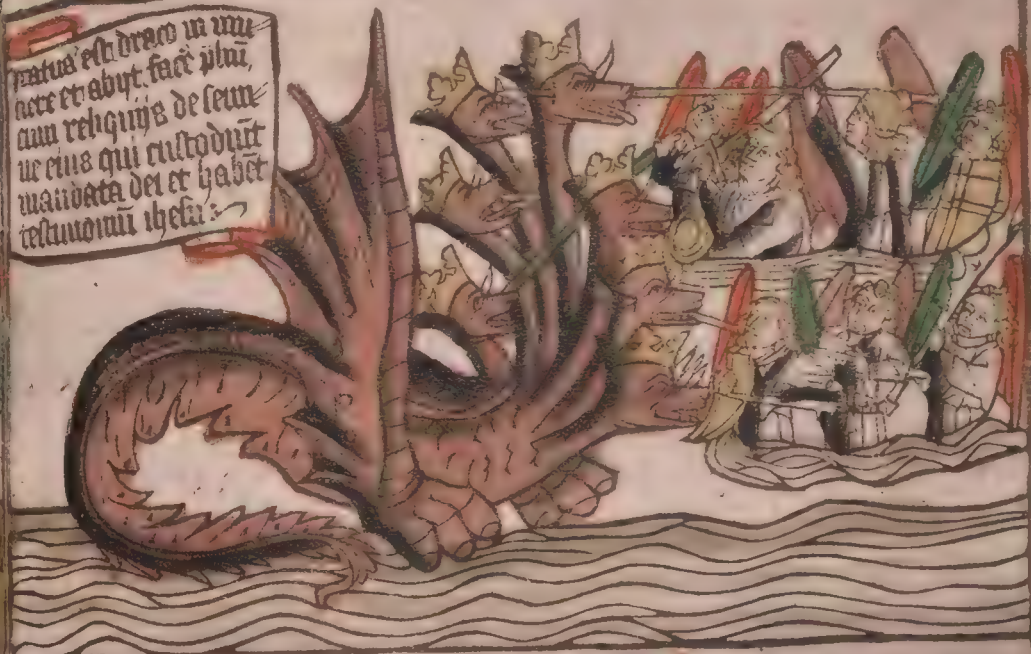 iratus est draco in mu
liere et abijt facē p̄liū
cum reliquijs de semi
ne eius qui custodiūt
mandata dei et habēt
testimoniū ihesu :